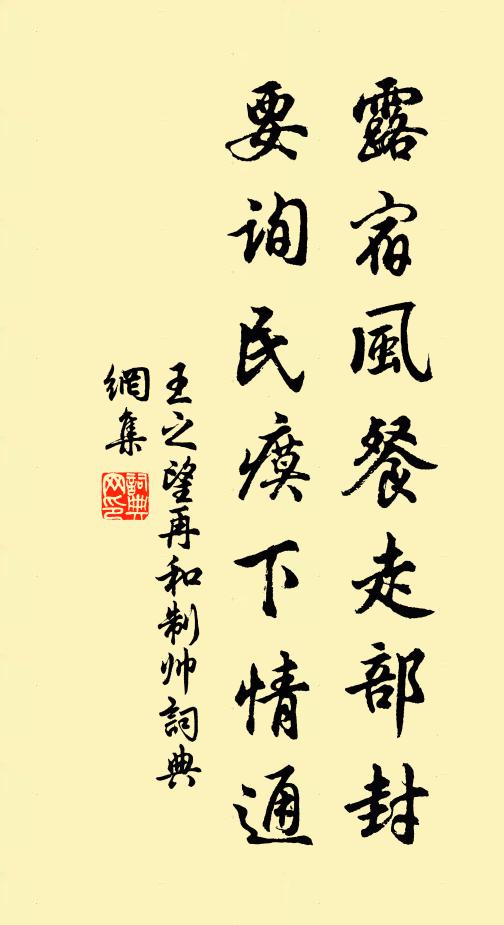 露宿風餐走部封
要詢民瘼下情通
王之望再和制帅詞典
網集
詞典網印